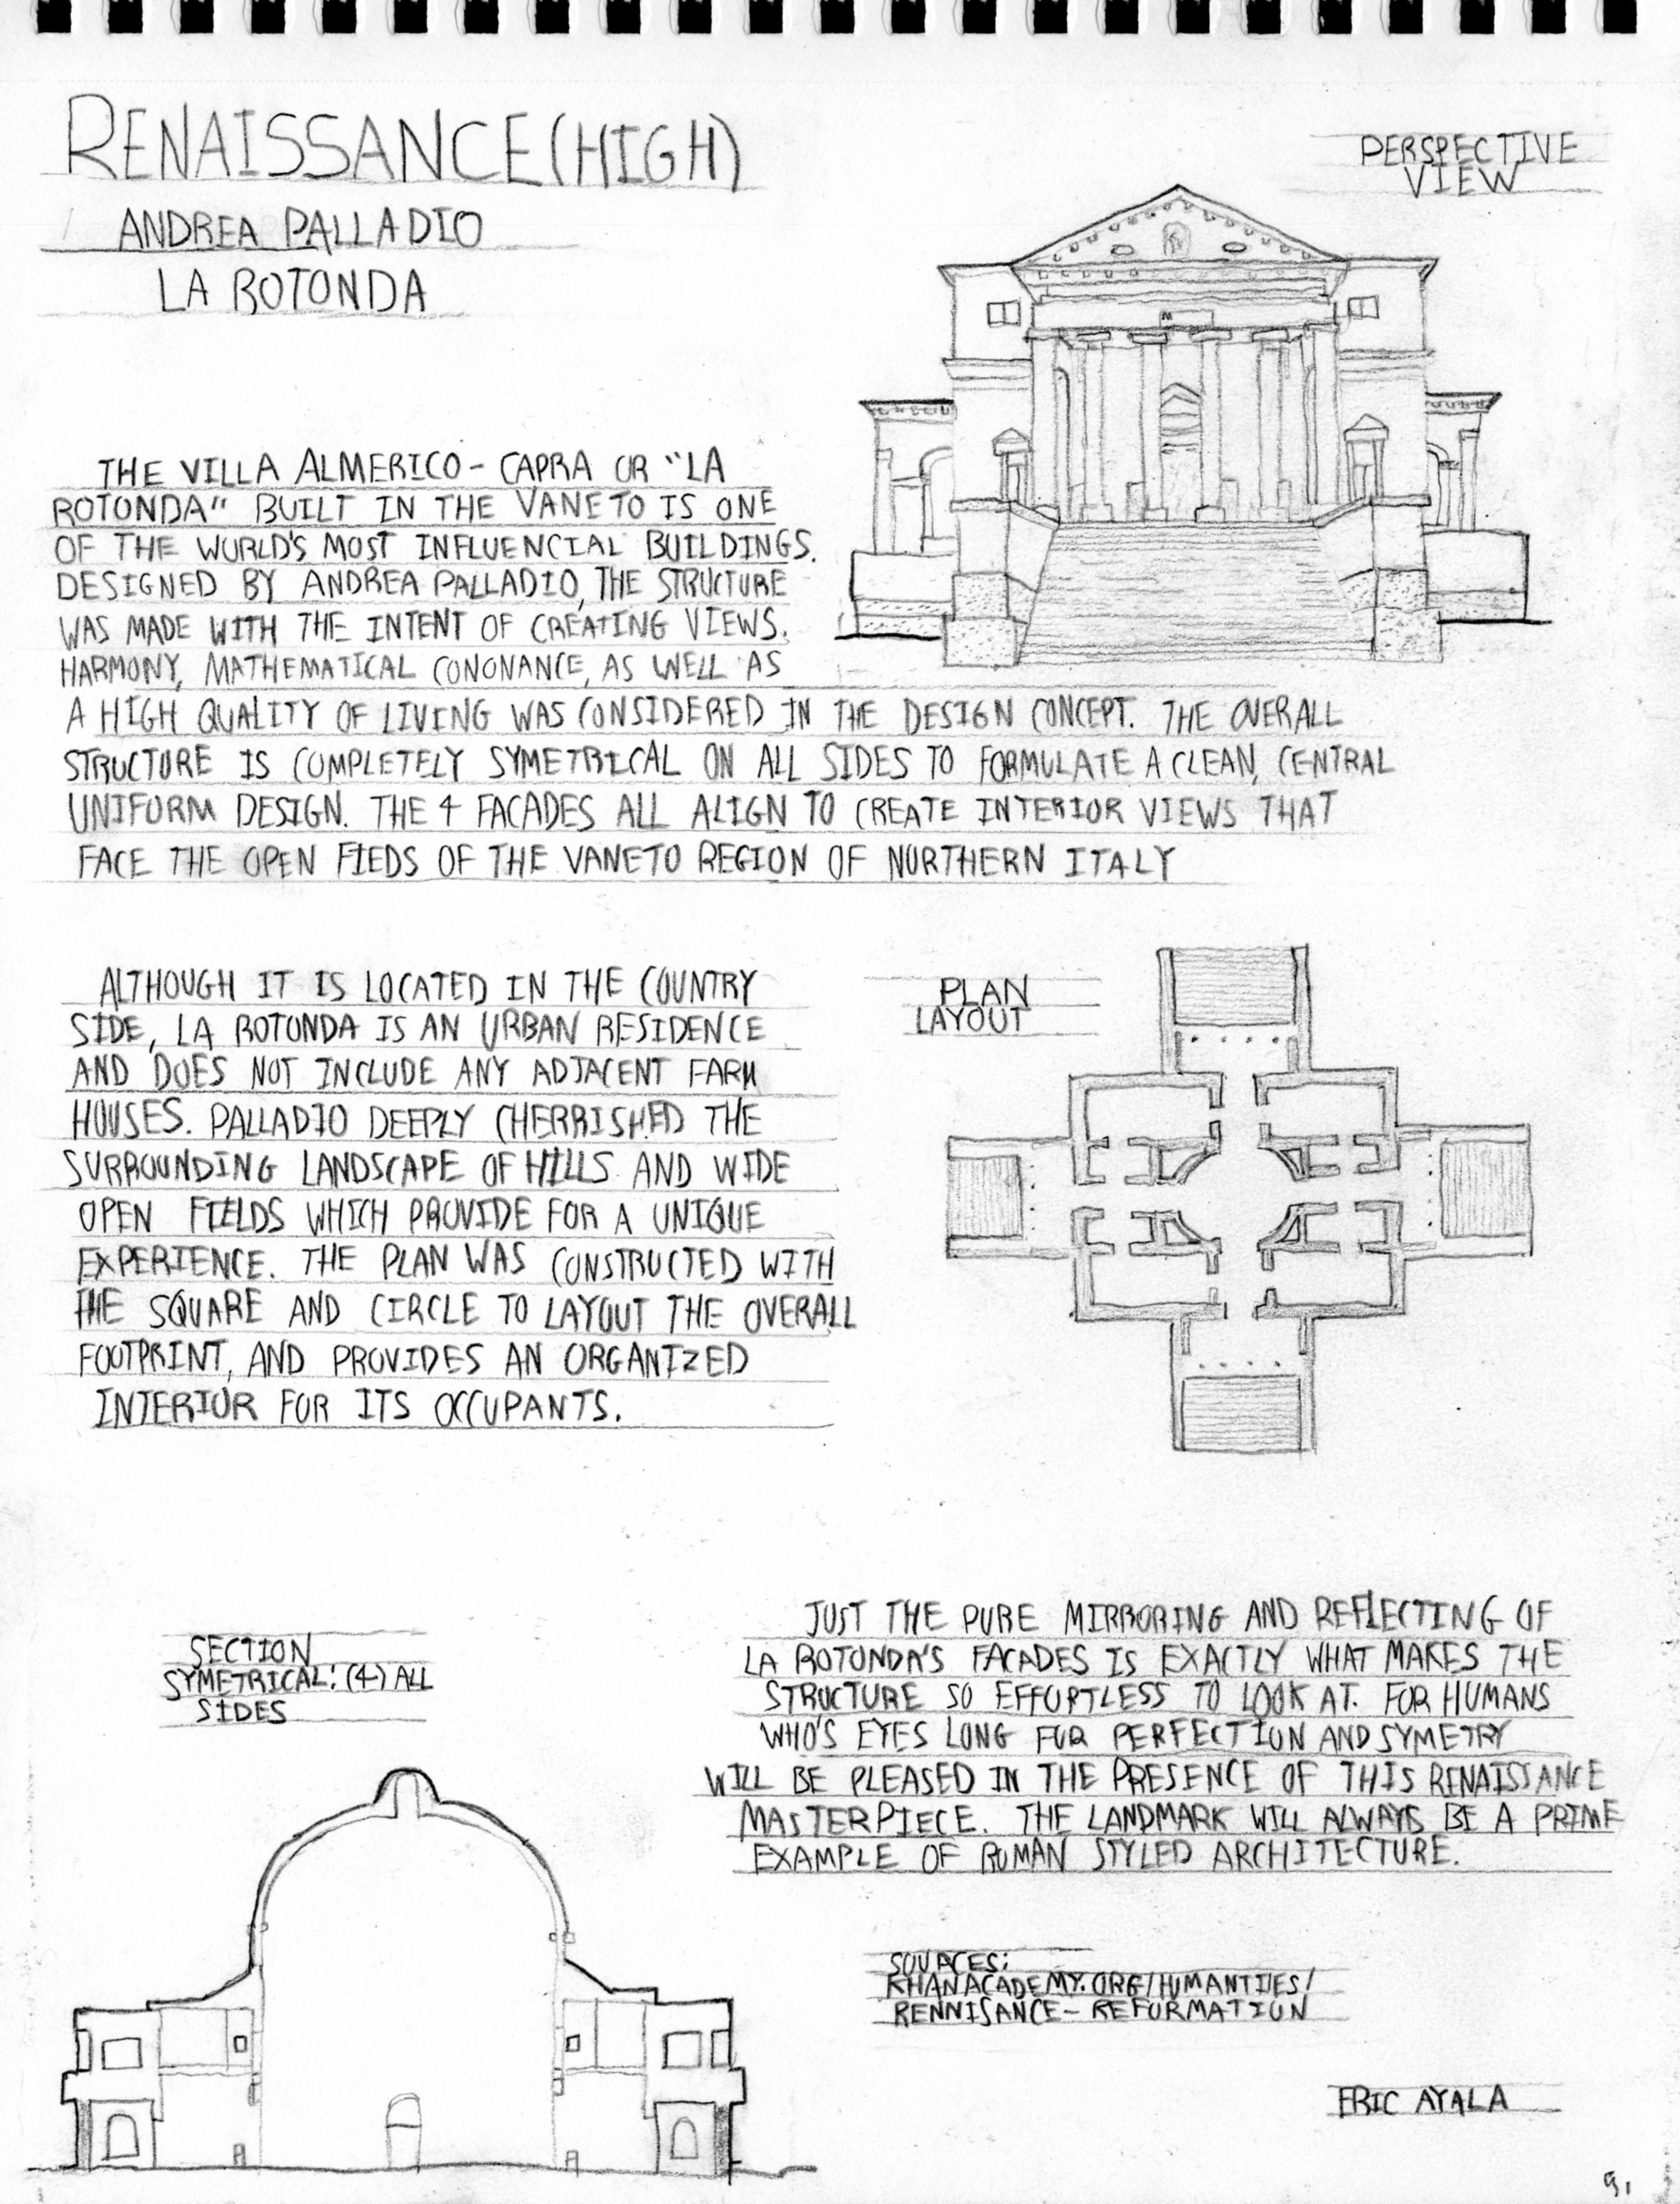 RENAISSANCE (HIGH)
ANDREA PALLADIO
LA ROTONDA
PERSPECTIVE
VIEW
THE VILLA ALMERICO - CAPRA OR "LA
ROTONDA" BUILT IN THE VANETO IS ONE
OF THE WORLD'S MOST INFLUENCIAL BUILDINGS.
DESIGNED BY ANDREA PALLADIO, THE STRUCTURE
WAS MADE WITH THE INTENT OF CREATING VIEWS.
HARMONY, MATHEMATICAL CONONANCE, AS WELL AS
A HIGH QUALITY OF LIVING WAS CONSIDERED IN THE DESIGN CONCEPT. THE OVERALL
STRUCTURE IS COMPLETELY SYMETRICAL ON ALL SIDES TO FORMULATE A CLEAN, CENTRAL
UNIFORM DESIGN. THE 4 FACADES ALL ALIGN TO CREATE INTERIOR VIEWS THAT
FACE THE OPEN FIEDS OF THE VANETO REGION OF NORTHERN ITALY
ALTHOUGH IT IS LOCATED IN THE COUNTRY
SIDE, LA ROTONDA IS AN URBAN RESIDENCE
AND DOES NOT INCLUDE ANY ADJACENT FARM
HOUSES. PALLADIO DEEPLY CHERRISHED THE
SURROUNDING LANDSCAPE OF HILLS AND WIDE
OPEN FIELDS WHICH PROVIDE FOR A UNIQUE
EXPERIENCE. THE PLAN WAS CONSTRUCTED WITH
THE SQUARE AND CIRCLE TO LAYOUT THE OVERALL
FOOTPRINT, AND PROVIDES AN ORGANIZED
INTERIOR FOR ITS OCCUPANTS.
PLAN
LAYOUT
SECTION
SYMETRICAL: (4) ALL
SIDES
JUST THE PURE MIRRORING AND REFLECTING OF
LA ROTONDA'S FACADES IS EXACTLY WHAT MAKES THE
STRUCTURE SO EFFORTLESS TO LOOK AT. FOR HUMANS
WHO'S EYES LONG FOR PERFECTION AND SYMETRY
WILL BE PLEASED IN THE PRESENCE OF THIS RENAISSANCE
MASTERPIECE. THE LANDMARK WILL ALWAYS BE A PRIME
EXAMPLE OF ROMAN STYLED ARCHITECTURE.
SOURCES:
KHANACADEMY.ORG/HUMANTIIES/
RENNISANCE - REFORMATION
ERIC AYALA